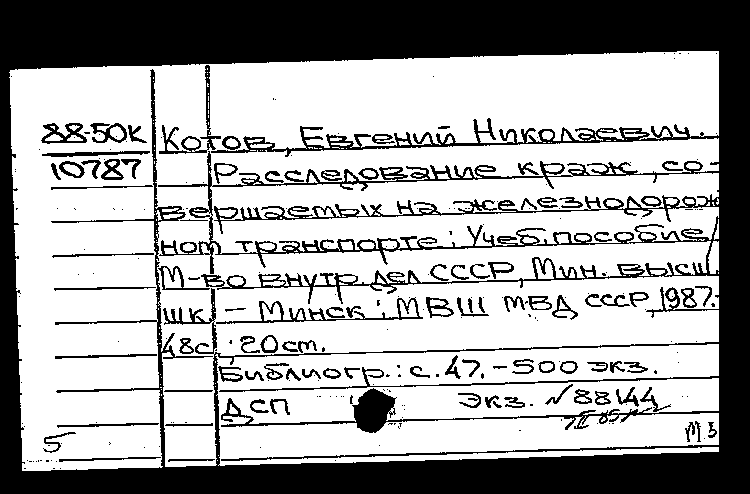 88-50К Котов, Евгений Николаевич.
10787 Расследование краж, со-
вершаемых на железнодорож
ном транспорте: Учеб. пособие /
М-во внутр. дел СССР, Мин. высш.
шк. - Минск: МВШ МВД СССР, 1987.-
48с.; 20см.
Библиогр.: с. 47. - 500 экз.
ДСП экз. №88144
5